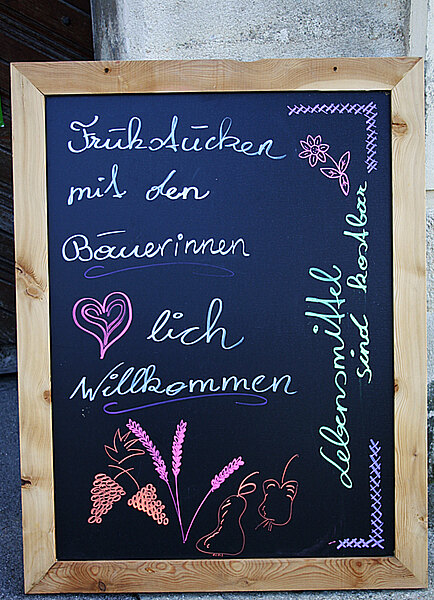 Frühstücken
mit den
Bäuerinnen
lich
Willkommen
Lebensmittel
sind kostbar